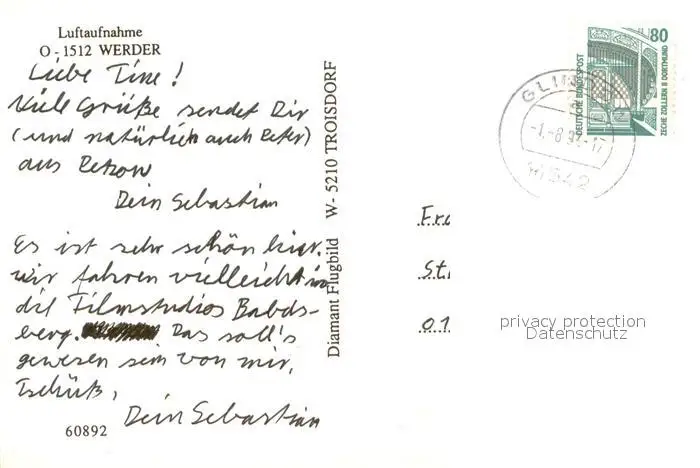 Luftaufnahme
O - 1512 WERDER
Liebe Tine!
Viele Grüße sendet Dir
(und natürlich auch Peter)
aus Petzow
Dein Sebastian
Es ist sehr schön hier.
Wir fahren vielleicht in
die Filmstudios Babds-
berg. Das soll's
gewesen sein von mir,
Tschüß,
Dein Sebastian
60892
Diamant Flugbild W- 5210 TROISDORF
80
DEUTSCHE BUNDESPOST
ZECHE ZOLLERN II DORTMUND
-1.-8.
Fr
St
01
privacy protection
Datenschutz